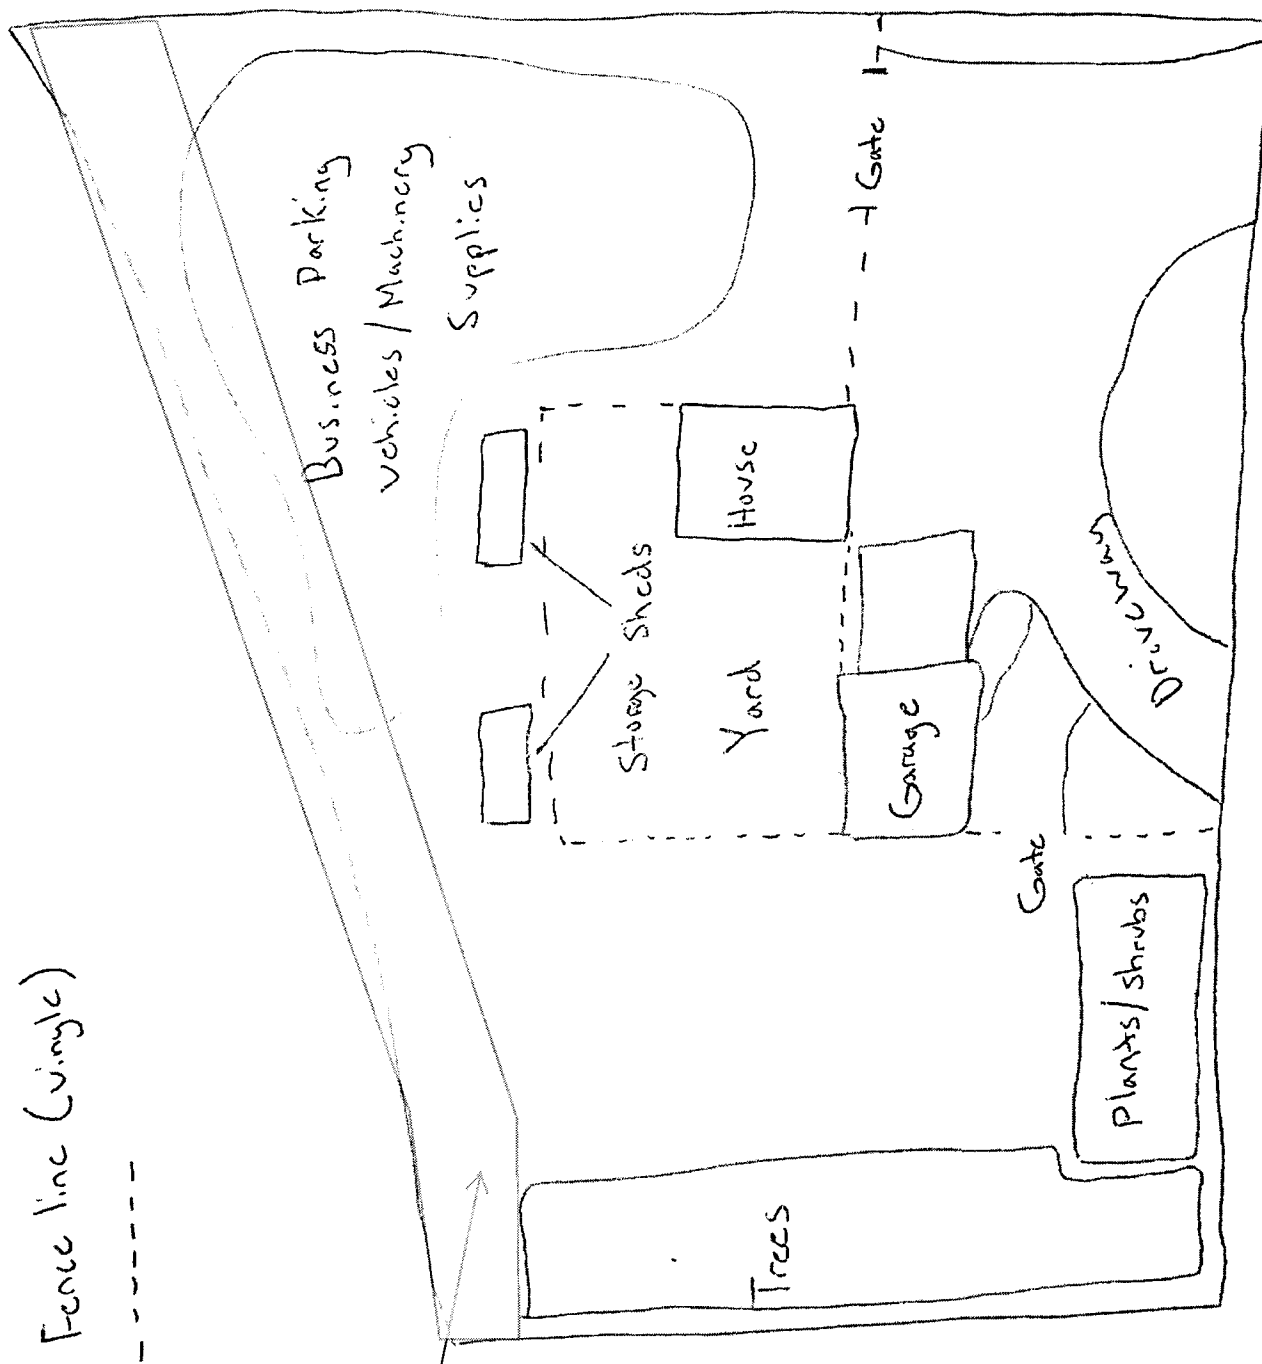 Fence line (vinyle)
Business Parking
vehicles/Machinery
Supplies
Gate
House
Storage Sheds
Yard
Garage
Driveway
Gate
Plants/shrubs
Trees